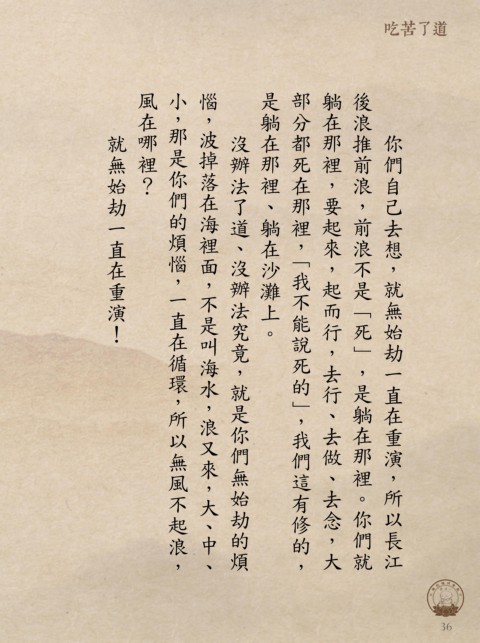 吃苦了道
你們自己去想，就無始劫一直在重演，所以長江
後浪推前浪，前浪不是「死」，是躺在那裡。你們就
躺在那裡，要起來，起而行，去行、去做、去念，大
部分都死在那裡，「我不能說死的」，我們這有修的，
是躺在那裡、躺在沙灘上。
沒辦法了道、沒辦法究竟，就是你們無始劫的煩
惱，波掉落在海裡面，不是叫海水，浪又來，大、中、
小，那是你們的煩惱，一直在循環，所以無風不起浪，
風在哪裡？
就無始劫一直在重演！
36